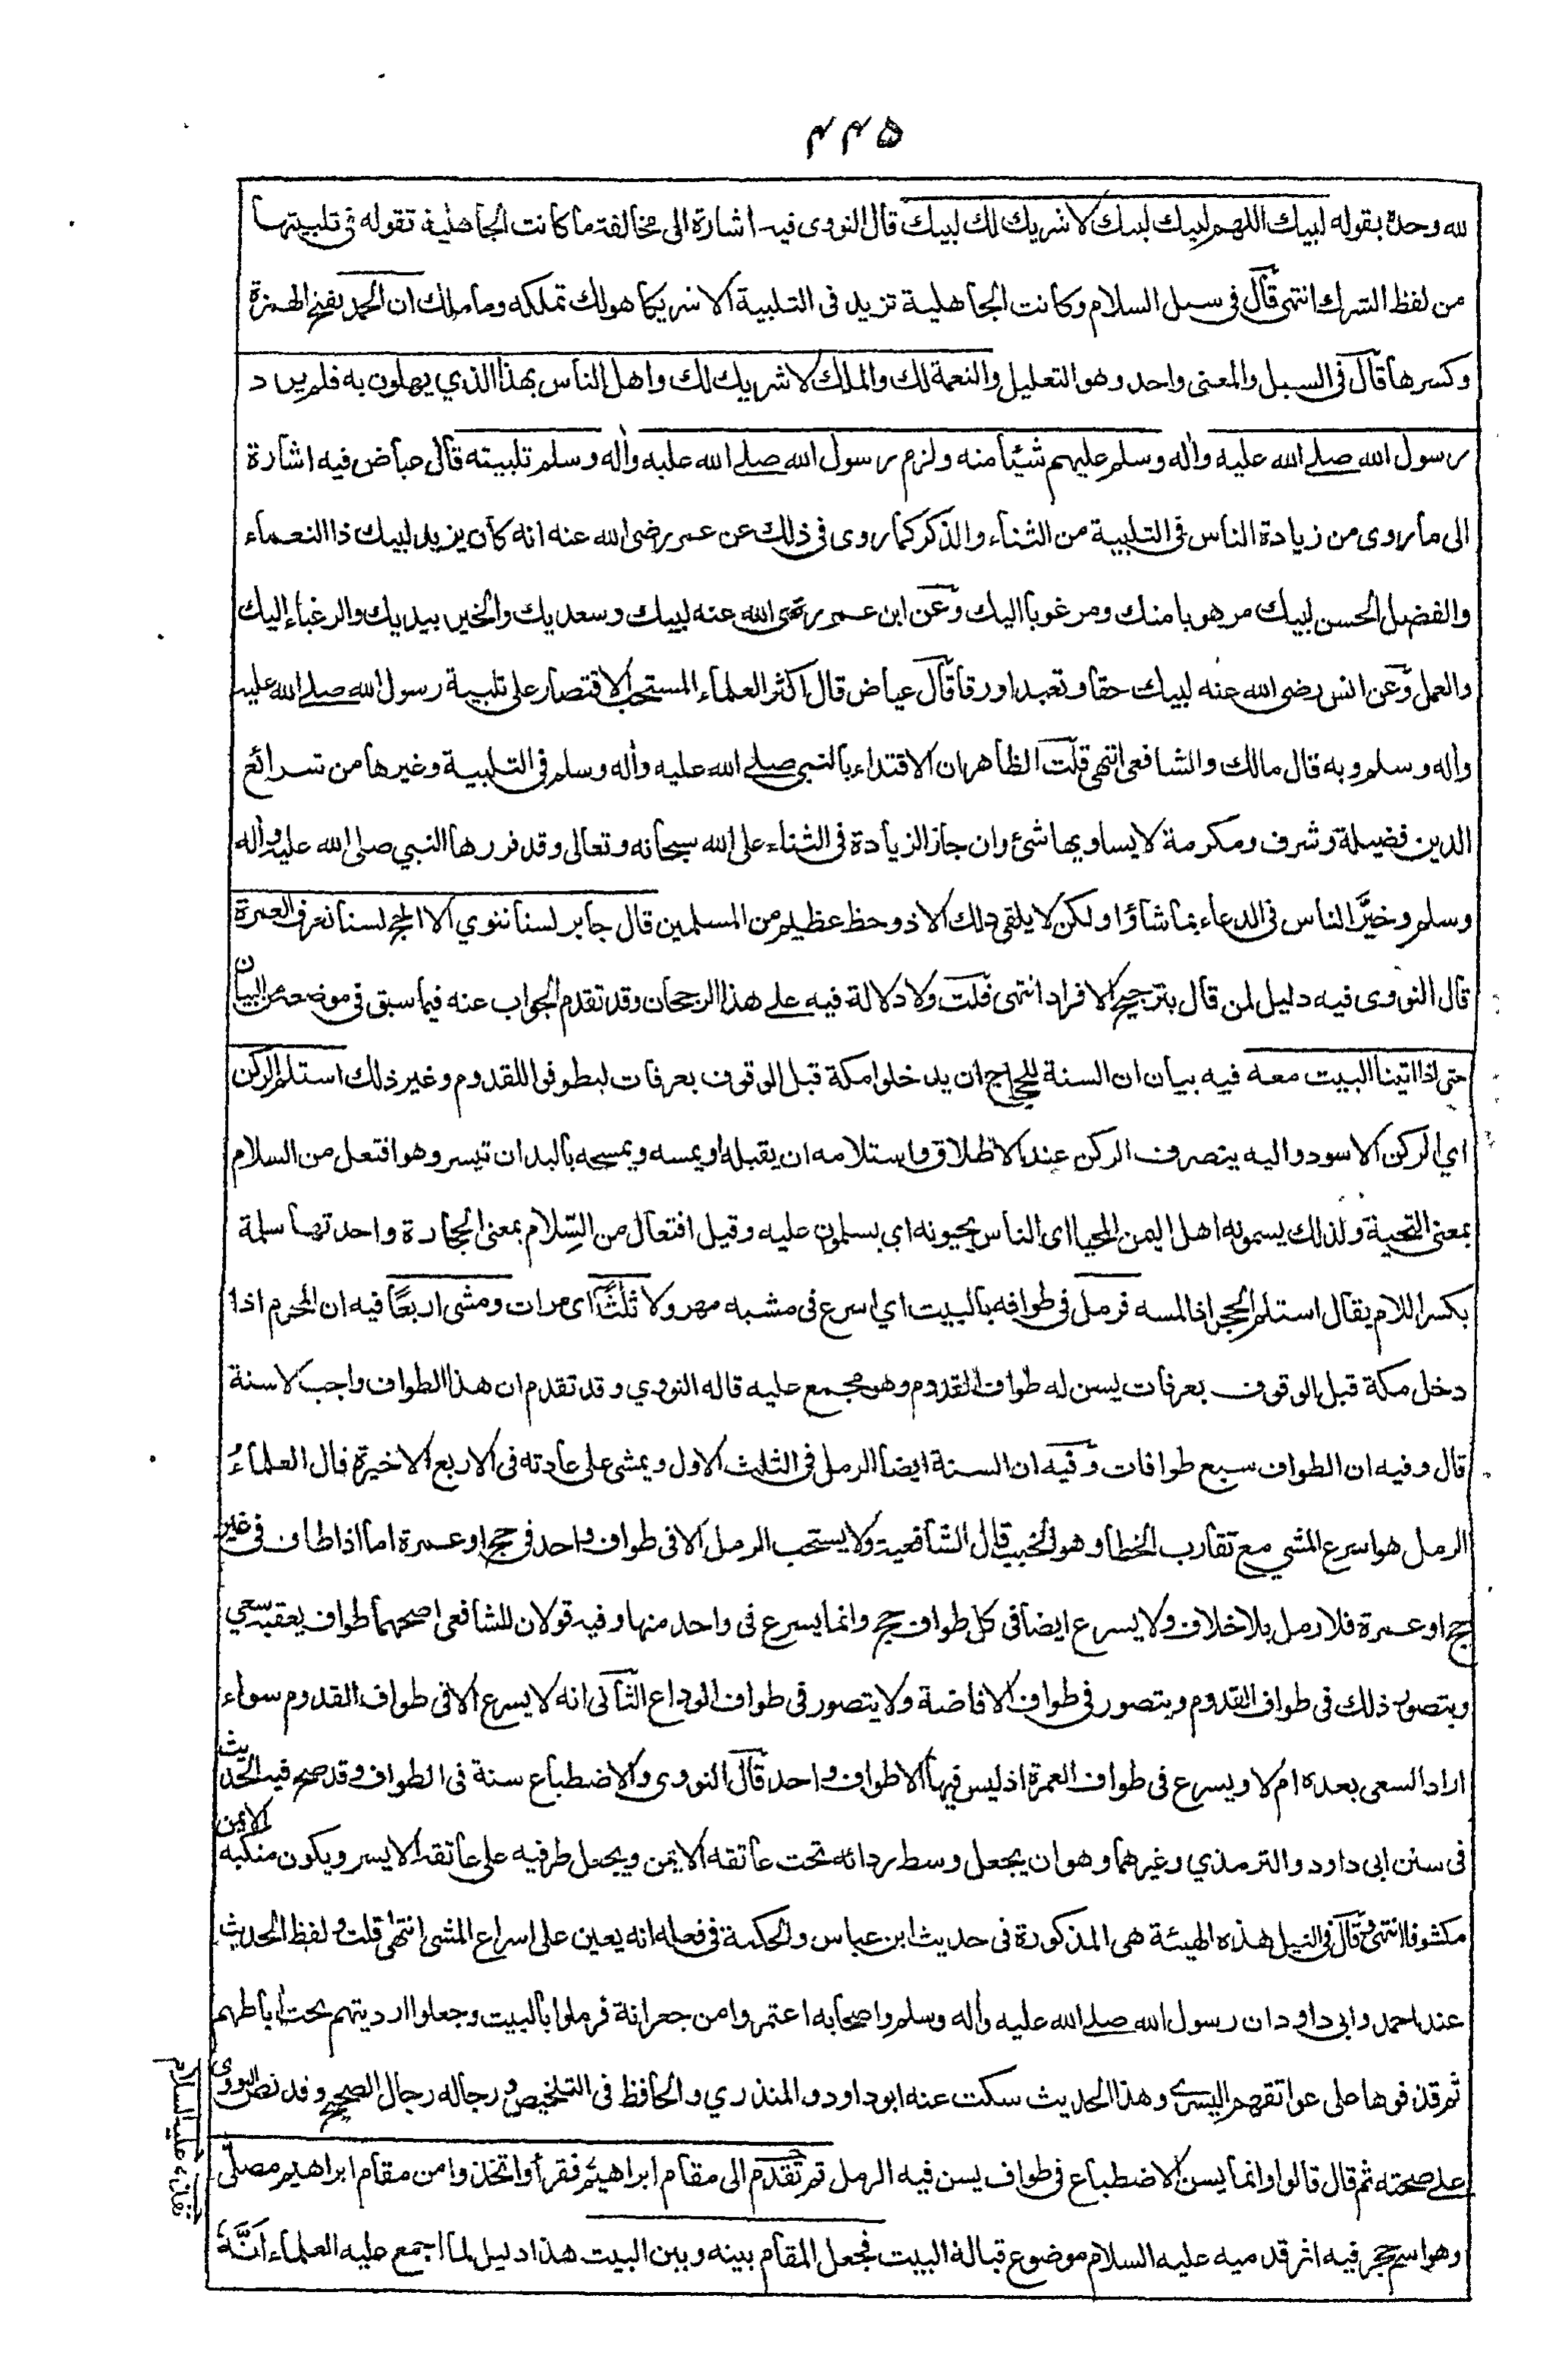 ۴۴۵
لله وحده بقوله لبيك اللهم لبيك لبيك لا شريك لك لبيك قال النووى فيه اشارة الى مخالفة ما كانت الجاهلية تقوله فى تلبيتها
من لفظ الشرك انتهى قال فى سبل السلام وكانت الجاهلية تزيد فى التلبية الا شريكا هو لك تملكه وما ملك ان الحمد بفتح الهمزة
وكسرها قال فى السبل والمعنى واحد وهو التعليل والنعمة لك والملك لا شريك لك واهل الناس بهذا الذي يهلون به فلم يرد
رسول الله صلے الله عليه واٰله وسلم عليهم شيئا منه ولزم رسول الله صلے الله عليه واٰله وسلم تلبيته قال عياض فيه اشارة
الى ما روى من زيادة الناس فى التلبية من الثناء والذكر كما روى فى ذلك عن عمر رضى الله عنه انه كان يزيد لبيك ذا النعماء
والفضل الحسن لبيك مرهوبا منك ومرغوبا اليك وعن ابن عمر رضى الله عنه لبيك وسعديك والخير بيديك والرغباء إليك
والعمل وعن انس رضى الله عنه لبيك حقا وتعبدا ورقا قال عياض قال اكثر العلماء المستحب الاقتصار على تلبية رسول الله صلے الله عليه
واٰله وسلم وبه قال مالك والشافعى انتهى قلت الظاهر ان الاقتداء بالنبى صلے الله عليه واٰله وسلم فى التلبية وغيرها من شرائع
الدين فضيلة وشرف ومكرمة لا يساويها شئ وان جاز الزيادة فى الثناء على الله سبحانه وتعالى وقد قررها النبي صلى الله عليه واٰله
وسلم وخيَّر الناس فى الدعاء بما شاؤا ولكن لا يلقى ذلك الا ذو حظ عظيم من المسلمين قال جابر لسنا ننوي الا الحج لسنا نعرف العمرة
قال النووى فيه دليل لمن قال بترجيح الافراد انتهى قلت ولا دلالة فيه على هذا الرجحان وقد تقدم الجواب عنه فيما سبق فى موضعه من البيان
حتى اذا اتينا البيت معه فيه بيان ان السنة للحاج ان يدخلوا مكة قبل الوقوف بعرفات ليطوفوا للقدوم وغير ذلك استلم الركن
اي الركن الاسود واليه ينصرف الركن عند الاطلاق واستلامه ان يقبله او يمسه ويمسحه باليد ان تيسر وهو افتعل من السلام
بمعنى التحية ولذلك يسمونه اهل اليمن المحيا اى الناس يحيونه اى يسلمون عليه وقيل افتعال من السِّلام بمعنى الحجارة واحدتها سلمة
بكسر اللام يقال استلم الحجر اذا لمسه فرمل فى طوافه بالبيت اي اسرع فى مشيه مهرولا ثلٰثًا اى مرات ومشى اربعًا فيه ان المحرم اذا
دخل مكة قبل الوقوف بعرفات يسن له طواف القدوم وهو مجمع عليه قاله النووي وقد تقدم ان هذا الطواف واجب لا سنة
قال وفيه ان الطواف سبع طوافات وفيه ان السنة ايضا الرمل فى الثلث الاول ويمشى على عادته فى الاربع الاخيرة قال العلماءُ
الرمل هو اسرع المشي مع تقارب الخطا وهو الخبب قال الشافعية ولا يستحب الرمل الا فى طواف واحد فى حج او عمرة اما اذا طاف فى غير
حج او عمرة فلا رمل بلا خلاف ولا يسرع ايضا فى كل طواف حج وانما يسرع فى واحد منها وفيه قولان للشافعى اصحهما طواف يعقبه سعي
ويتصور ذلك فى طواف القدوم ويتصور فى طواف الافاضة ولا يتصور فى طواف الوداع الثانى انه لا يسرع الا فى طواف القدوم سواء
اراد السعى بعده ام لا ويسرع فى طواف العمرة اذ ليس فيها الا طواف واحد قال النووى والاضطباع سنة فى الطواف وقد صح فيه الحديث
فى سنن ابى داود والترمذي وغيرهما وهو ان يجعل وسط ردائه تحت عاتقه الايمن ويجعل طرفيه على عاتقه الايسر ويكون منكبه الايمن
مكشوفا انتهى وقال فى النيل هذه الهيئة هى المذكورة فى حديث ابن عباس والحكمة فى فعله انه يعين على اسراع المشى انتهٰى قلت ولفظ الحديث
عند احمد وابى داود ان رسول الله صلے الله عليه واٰله وسلم واصحابه اعتمروا من جعرانة فرملوا بالبيت وجعلوا ارديتهم تحت اٰباطهم
ثم قذفوها على عواتقهم اليسرى وهذا الحديث سكت عنه ابو داود والمنذري والحافظ فى التلخيص ورجاله رجال الصحيح وقد نص النووى
على صحته ثم قال قالوا وانما يسن الاضطباع فى طواف يسن فيه الرمل ثم تقدم الى مقام ابراهيم فقرأ واتخذوا من مقام ابراهيم مصلّى
وهو اسم حجر فيه اثر قدميه عليه السلام موضوع قبالة البيت فجعل المقام بينه وبين البيت هذا دليل لما اجمع عليه العلماء اَنَّهٗ
عليه السلام